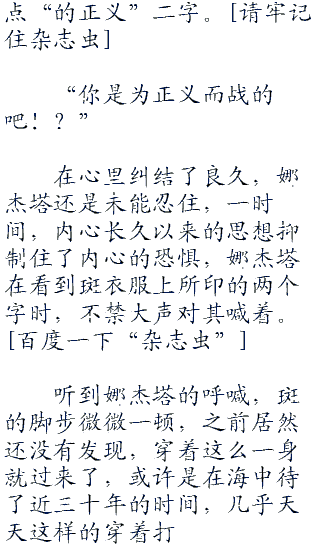 点“的正义”二字。[请牢记
住杂志虫]
“你是为正义而战的
吧！？”
在心里纠结了良久，娜
杰塔还是未能忍住，一时
间，内心长久以来的思想抑
制住了内心的恐惧，娜杰塔
在看到斑衣服上所印的两个
字时，不禁大声对其喊着。
[百度一下“杂志虫”]
听到娜杰塔的呼喊，斑
的脚步微微一顿，之前居然
还没有发现，穿着这么一身
就过来了，或许是在海中待
了近三十年的时间，几乎天
天这样的穿着打